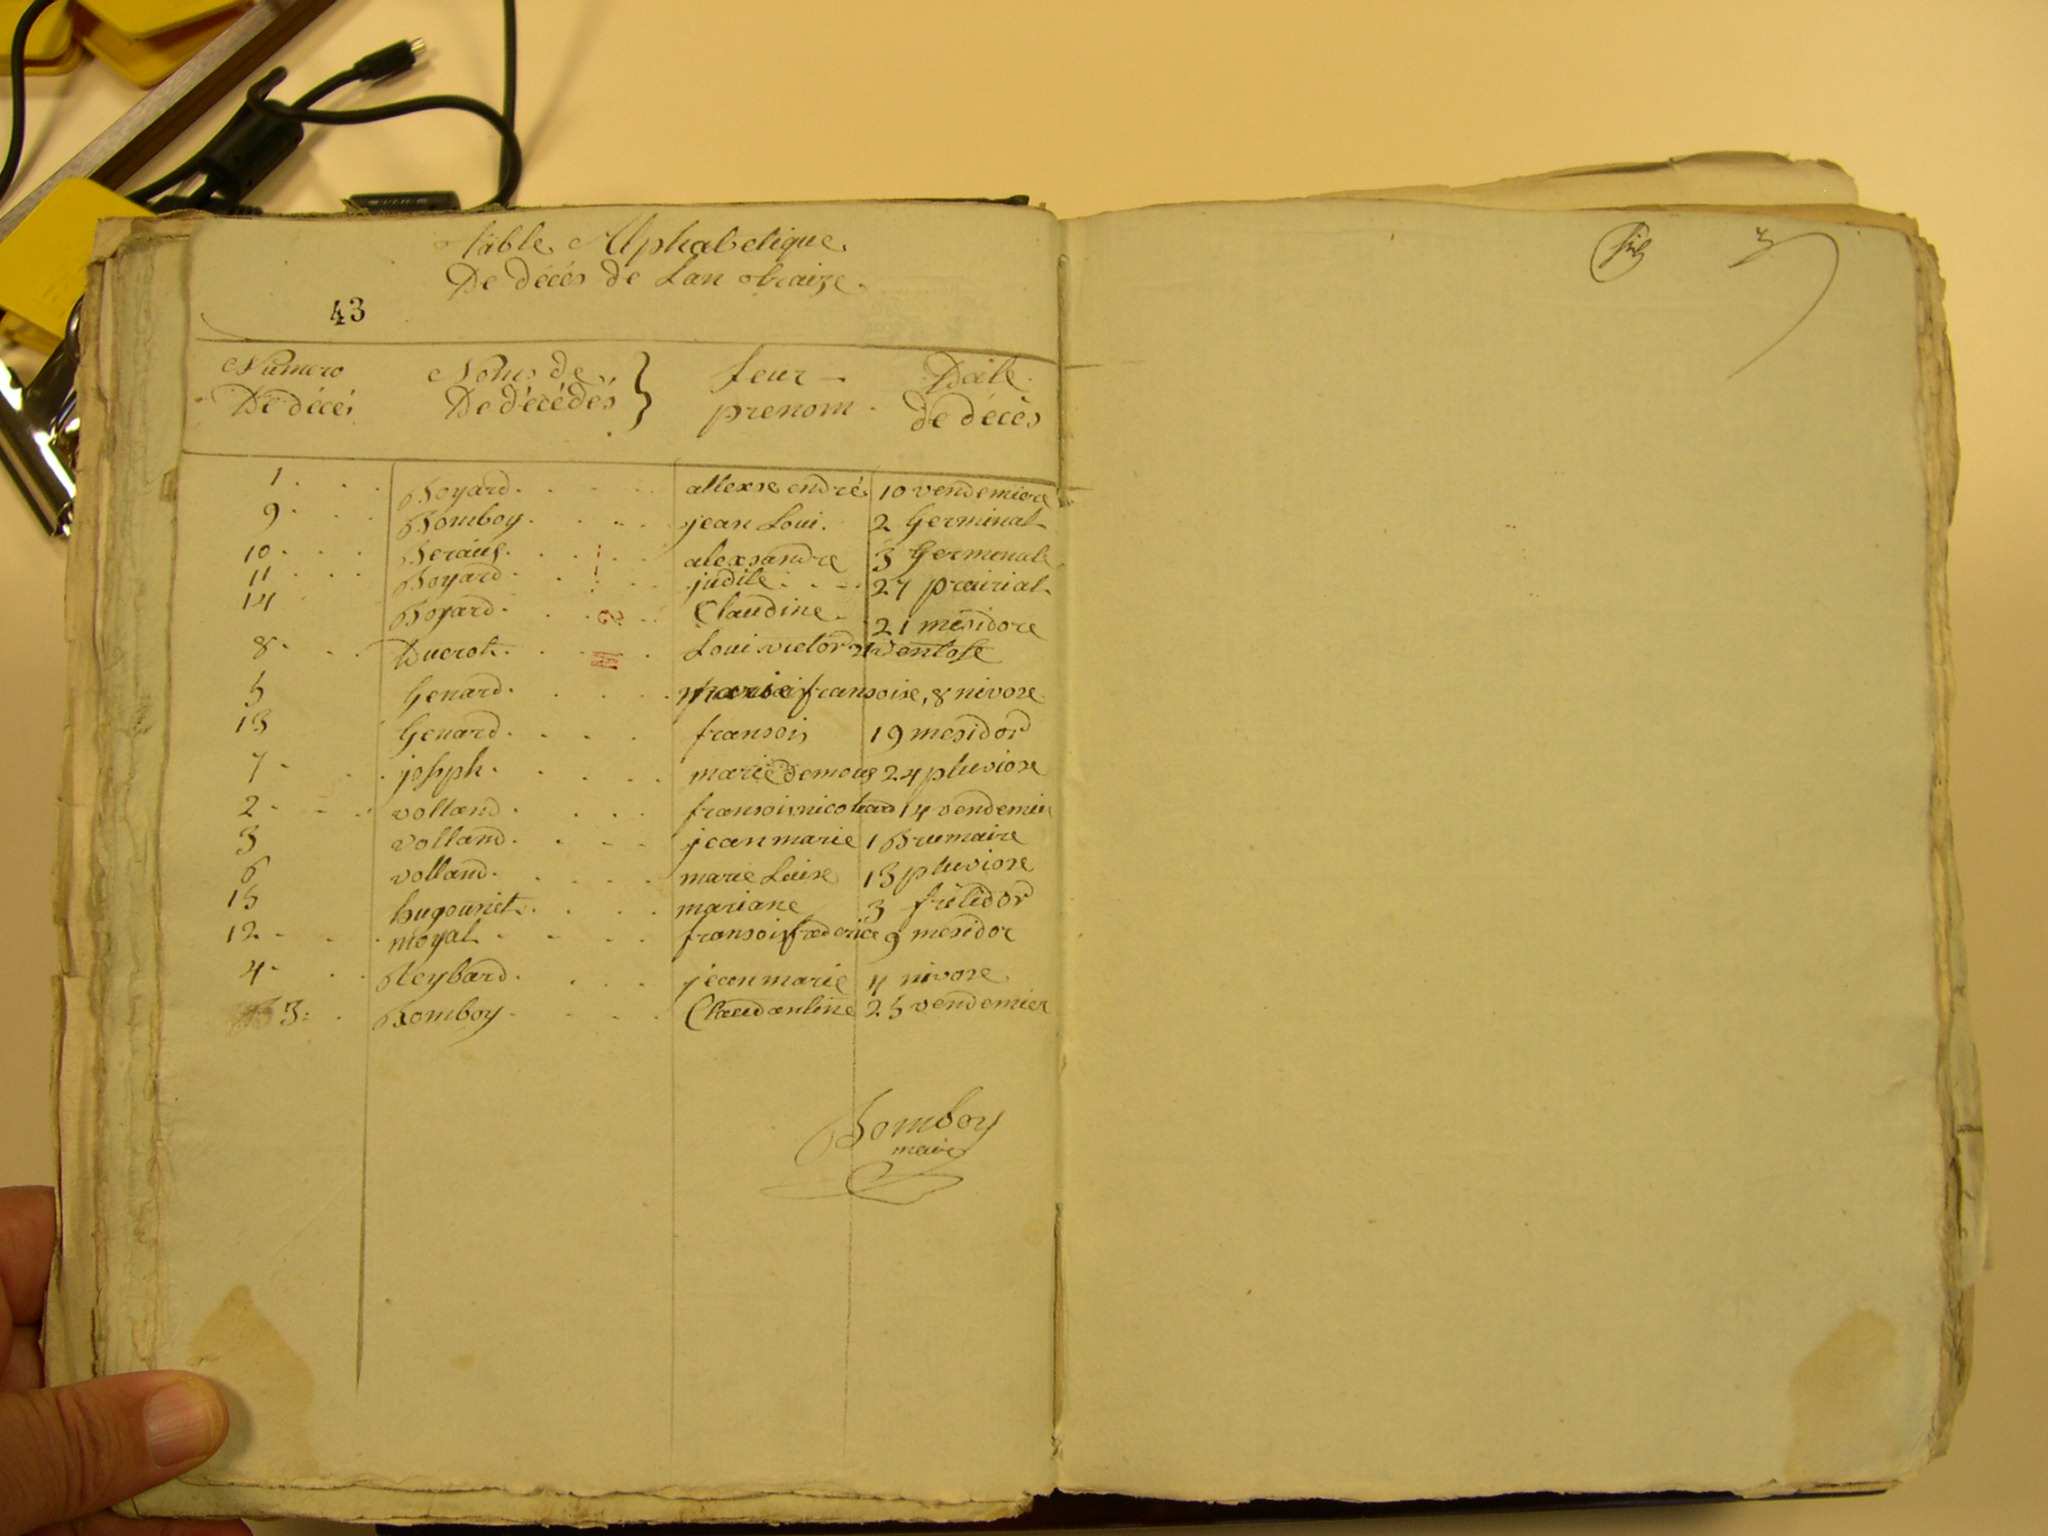 Table Alphabetique
De décés de Lan traize
43
Numero Noms de leur Date
De décés De décédés } prenom de décès
1 Boyard allexse endré 10 vendemiere
9 Bomboy jean Loui 2 Germinal
10 alexsandre 3 Germinal
11 Boyard judite 27 prairial
14 Boyard Claudine 21 mesidore
8 Ducrot Loui victor ventose
5 Genard marie fransoise, 8 nivose
13 Genard fransois 19 mesidor
7 joseph marie 24 pluviose
2 volland fransois 14 vendemier
3 volland jean marie 1 Brumaire
6 volland marie Luise 13 pluviose
15 hugouniet mariane 3
12 moyal fransois frederice 9 mesidor
4 Reybard jean marie 4 nivose
3 Bomboy Claudantine 25 vendemier
Bomboy
maire